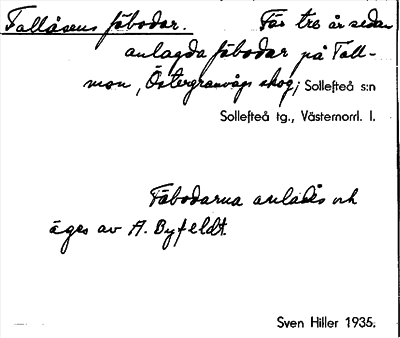 Tallåsens fäbodar. För tre år sedan
anlagda fäbodar på Tall-
mon, Östergranvågs skog, Sollefteå s:n
Sollefteå tg., Västernorrl. l.
Fäbodarna anlades och
äges av A. Byfeldt.
Sven Hiller 1935.